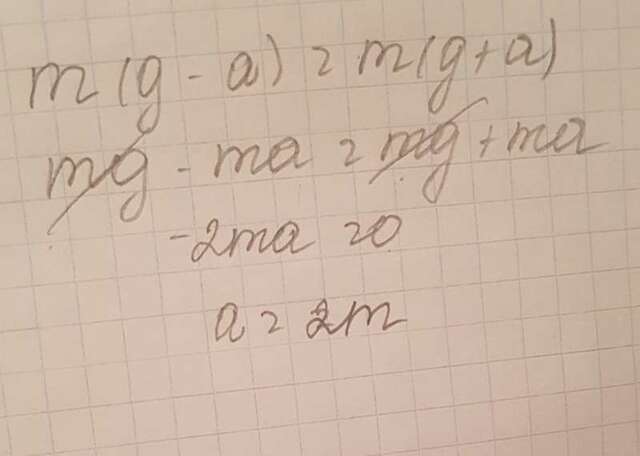 m(g - a) = m(g + a)
mg - ma = mg + ma
-2ma = 0
a = 2m